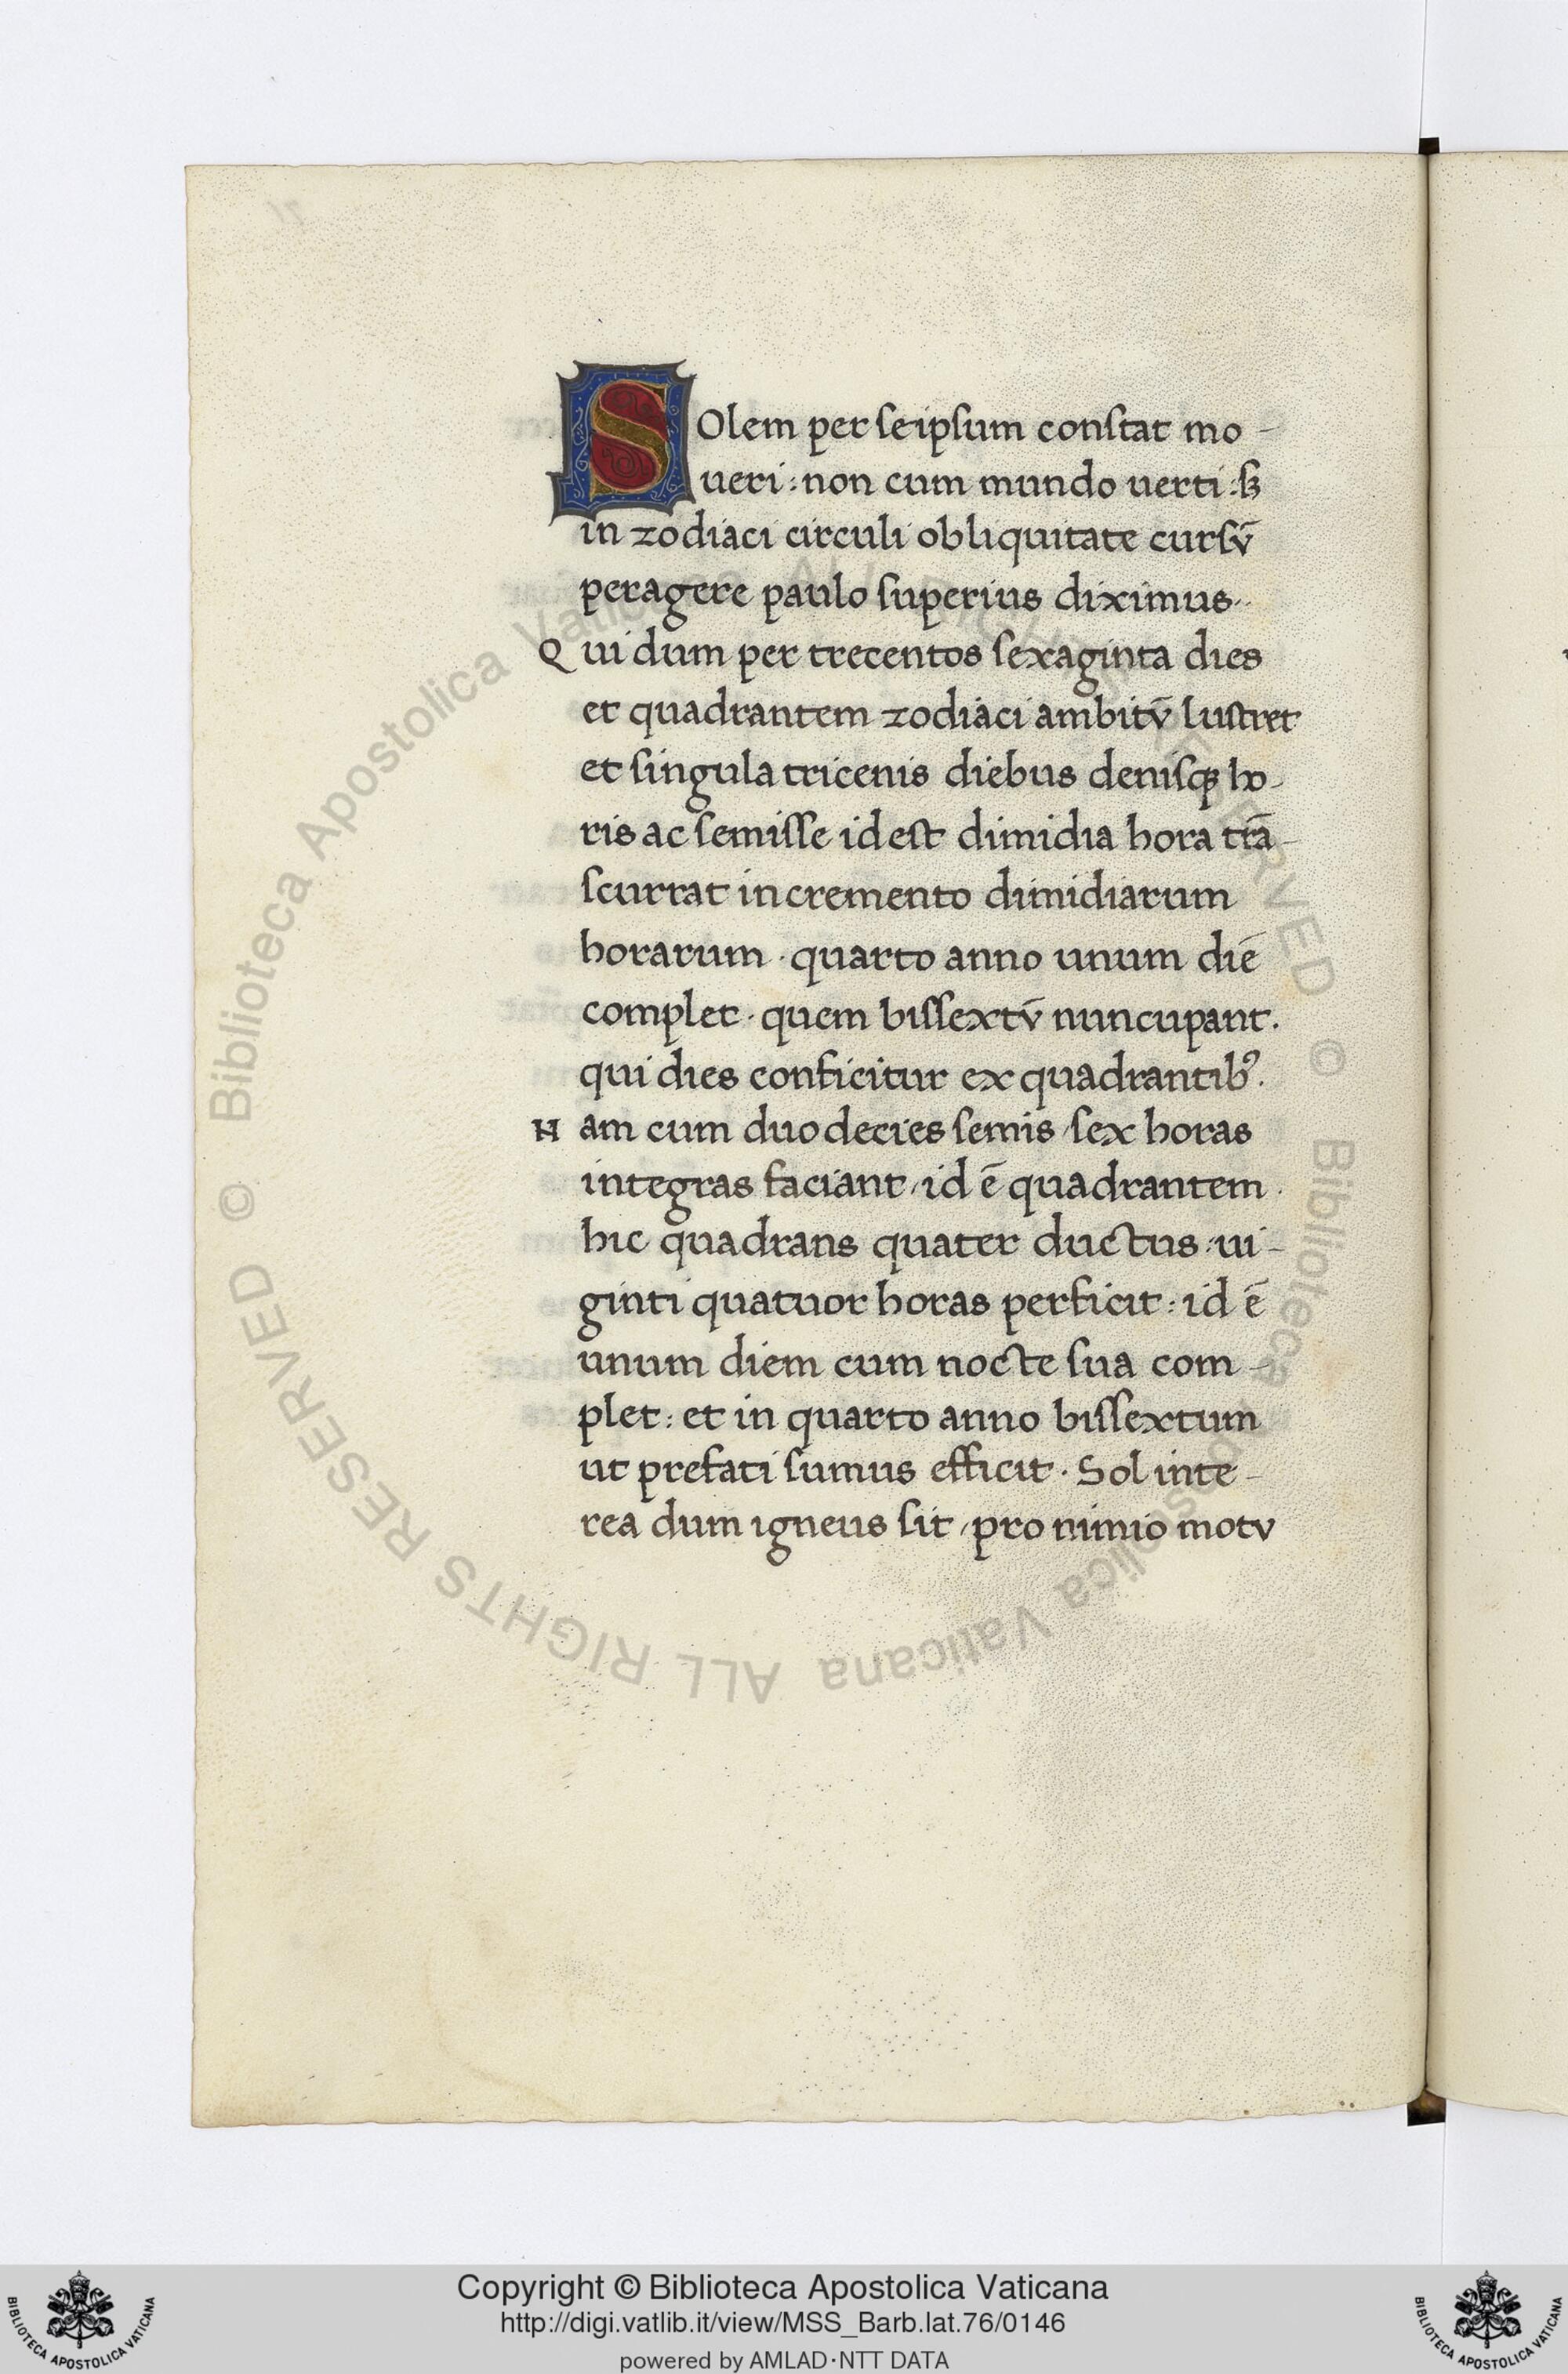 SOlem per seipsum constat mo-
ueri: non cum mundo uerti: sꝫ
in zodiaci circuli obliquitate cursv̄
peragere paulo superius diximus.
Qui dum per trecentos sexaginta dies
et quadrantem zodiaci ambitv̄ lustret
et singula tricenis diebus denisqꝫ ho-
ris ac semisse id est dimidia hora trā-
scurrat incremento dimidiarum
horarum · quarto anno unum diē
complet · quem bissextv̄ nuncupant.
qui dies conficitur ex quadrantibꝰ.
Nam cum duodecies semis / sex horas
integras faciant / id ē quadrantem.
hic quadrans quater ductus / ui-
ginti quatuor horas perficit: id ē
unum diem cum nocte sua com-
plet: et in quarto anno bissextum
ut prefati sumus efficit · Sol inte-
rea dum igneus sit / pro nimio motv
© Biblioteca Apostolica Vaticana ALL RIGHTS RESERVED © Biblioteca Apostolica Vaticana ALL RIGHTS RESERVED
Copyright © Biblioteca Apostolica Vaticana
http://digi.vatlib.it/view/MSS_Barb.lat.76/0146
powered by AMLAD·NTT DATA
BIBLIOTECA APOSTOLICA VATICANA
BIBLIOTECA APOSTOLICA VATICANA